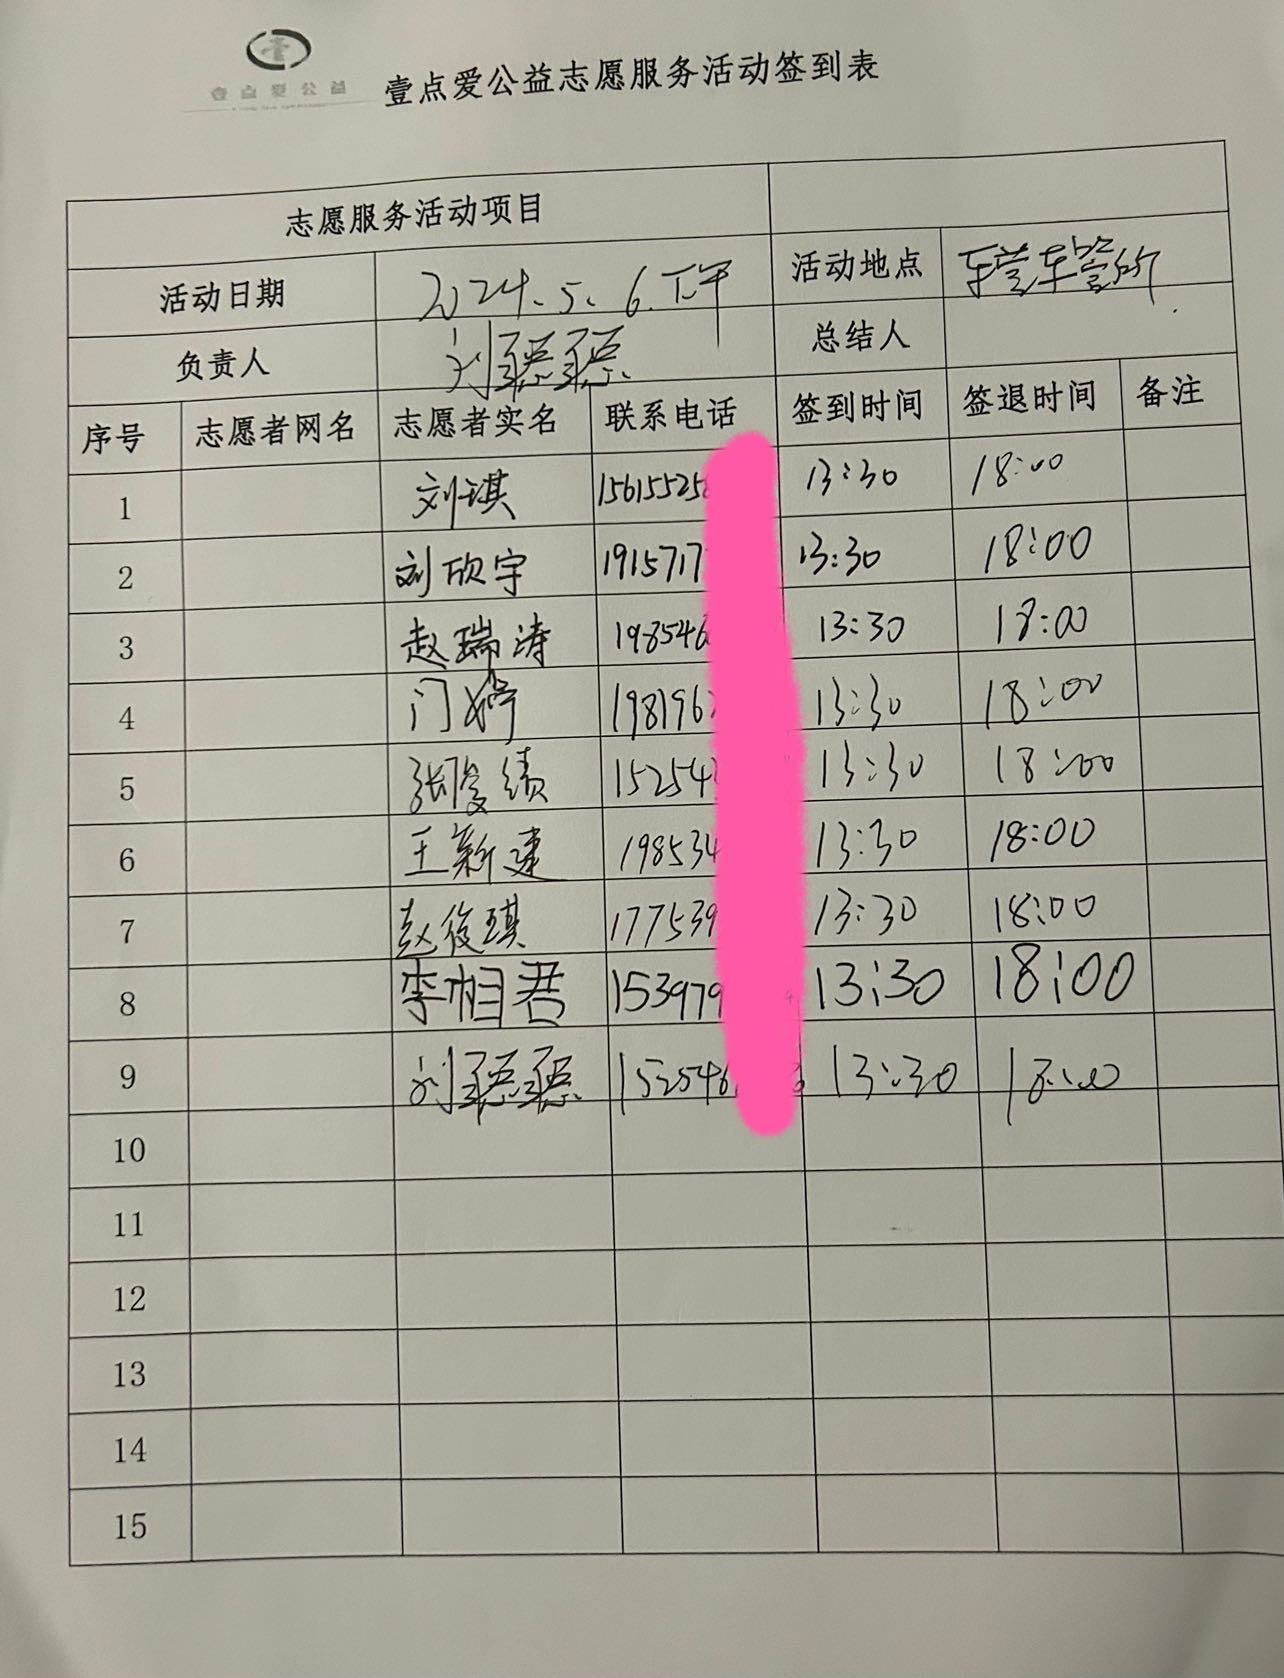 壹点爱公益
壹点爱公益志愿服务活动签到表
志愿服务活动项目
活动日期 2024.5.6.下午 活动地点 东营车管所
负责人 刘聪聪 总结人
序号 志愿者网名 志愿者实名 联系电话 签到时间 签退时间 备注
1 刘琪 1561552 13:30 18:00
2 刘欣宇 1915717 13:30 18:00
3 赵瑞涛 198546 13:30 18:00
4 门婷 198196 13:30 18:00
5 张俊绩 15254 13:30 18:00
6 王新建 198534 13:30 18:00
7 赵俊琪 177539 13:30 18:00
8 李相君 153979 13:30 18:00
9 刘聪聪 152546 13:30 18:00
10
11
12
13
14
15